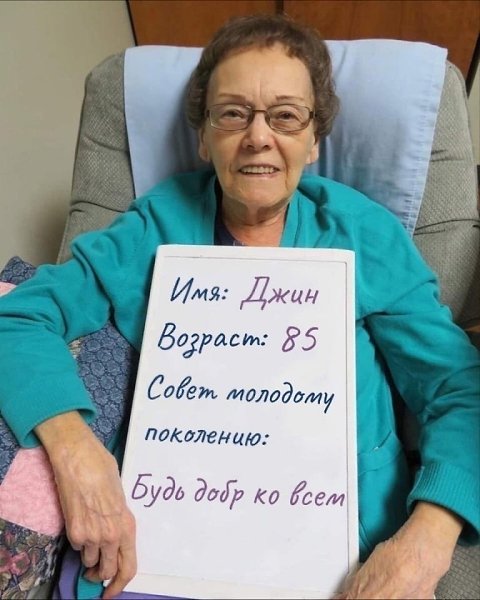 Имя: Джин
Возраст: 85
Совет молодому
поколению:
Будь добр ко всем